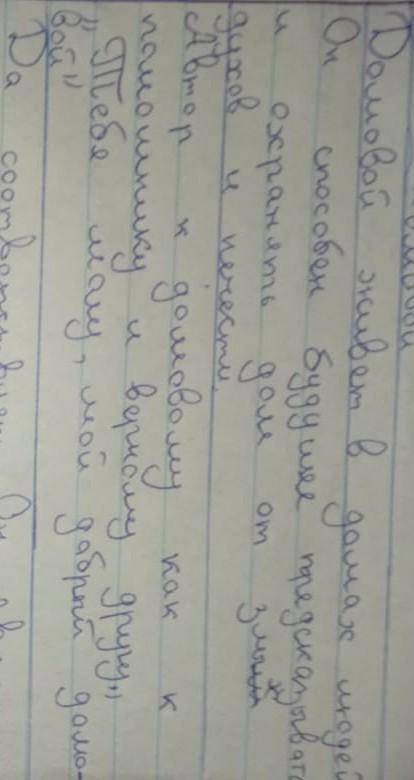 Домовой живет в домах людей
Он способен будущее предсказывать
и охранять дом от злых
духов и нечести.
Автор к домовому как к
помошнику и верному другу „
„Тебе малу, мой добрый домо-
вой"
Да соответствует Он